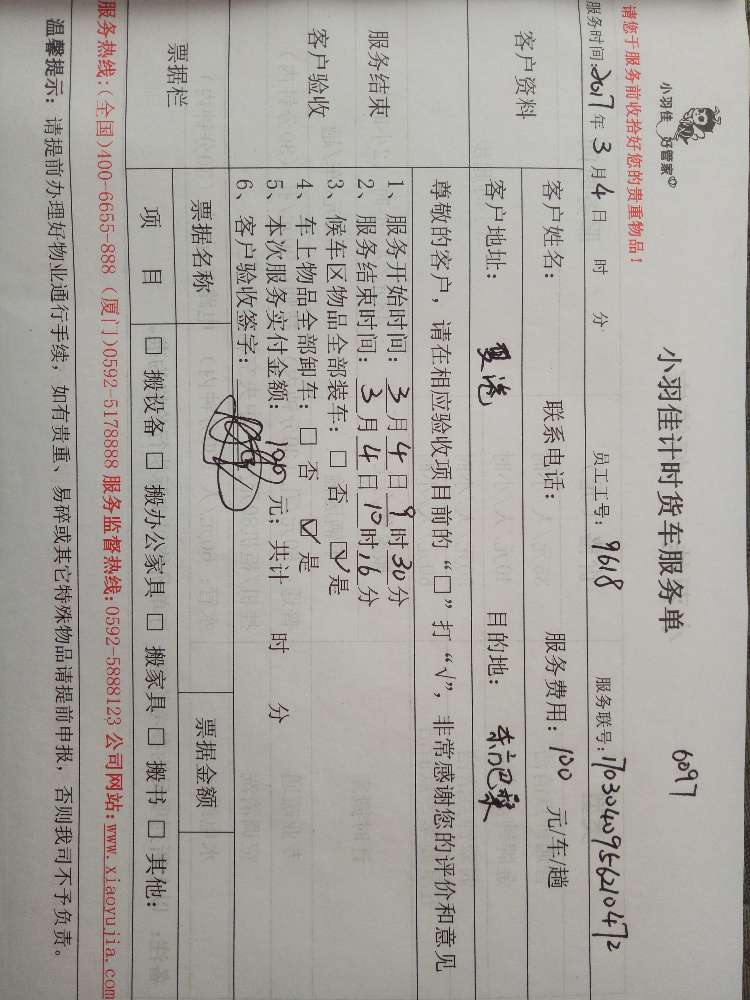 小羽佳 好管家
小羽佳计时货车服务单
6097
请您于服务前收拾好您的贵重物品！
服务时间：2017年3月4日 时 分 员工工号：9618 服务联号：1703040956210472
客户资料
客户姓名： 联系电话： 服务费用：100 元/车/趟
客户地址： 目的地：
尊敬的客户，请在相应验收项目前的“□”打“√”，非常感谢您的评价和意见
服务结束
客户验收
1、服务开始时间：3月4日9时30分
2、服务结束时间：3月4日10时16分
3、候车区物品全部装车：□ 否 ☑ 是
4、车上物品全部卸车：□ 否 ☑ 是
5、本次服务实付金额：100 元；共计 时 分
6、客户验收签字：
票据栏
票据名称 票据金额
项 目 □ 搬设备 □ 搬办公家具 □ 搬家具 □ 搬书 □ 其他：
服务热线：(全国)400-6655-888 (厦门)0592-5178888 服务监督热线：0592-5888123 公司网站：www.xiaoyujia.com
温馨提示：请提前办理好物业通行手续，如有贵重、易碎或其它特殊物品请提前申报，否则我司不予负责。